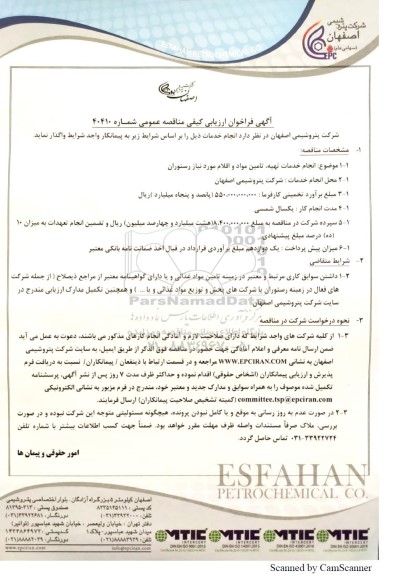 شرکت پتروشیمی
اصفهان
(سهامی عام)
EPC
آگهی فراخوان ارزیابی کیفی مناقصه عمومی شماره ۴۰۴۱۰
شرکت پتروشیمی اصفهان در نظر دارد انجام خدمات ذیل را بر اساس شرایط زیر به پیمانکار واجد شرایط واگذار نماید
۱- مشخصات مناقصه:
۱-۱ موضوع: انجام خدمات تهیه، تامین مواد و اقلام مورد نیاز رستوران
۲-۱ محل انجام خدمات : شرکت پتروشیمی اصفهان
۳-۱ مبلغ برآورد تخمینی کارفرما : ۵۵۰،۰۰۰،۰۰۰،۰۰۰ (پانصد و پنجاه میلیارد) ریال
۴-۱ مدت انجام کار : یکسال شمسی
۵-۱ سپرده شرکت در مناقصه به مبلغ ۱۸،۴۰۰،۰۰۰،۰۰۰(هشت میلیارد و چهارصد میلیون) ریال و تضمین انجام تعهدات به میزان ۱۰
(ده) درصد مبلغ پیشنهادی
۶-۱ میزان پیش پرداخت : یک دوازدهم مبلغ برآوردی قرارداد در قبال اخذ ضمانت نامه بانکی معتبر
۲- شرایط متقاضی
۱-۲ داشتن سوابق کاری مرتبط و معتبر در زمینه تامین مواد غذائی و یا دارای گواهینامه معتبر از مراجع ذیصلاح ( از جمله شرکت
های فعال در زمینه رستوران یا شرکت های پخش و توزیع مواد غذائی و یا ... ) و همچنین تکمیل مدارک ارزیابی مندرج در
سایت شرکت پتروشیمی اصفهان
۳- نحوه درخواست شرکت در مناقصه
۱-۳ از کلیه شرکت های واجد شرایط که دارای صلاحیت لازم و آمادگی انجام کارهای مذکور می باشند، دعوت به عمل می آید
ضمن ارسال نامه معرفی و اعلام آمادگی جهت حضور در مناقصه فوق الذکر از طریق ایمیل، به سایت شرکت پتروشیمی
اصفهان به نشانی WWW.EPCIRAN.COM مراجعه و در قسمت ارتباط با ذینفعان / پیمانکاران/ نسبت به دریافت فرم
پذیرش و ارزیابی پیمانکاران (اشخاص حقوقی) اقدام نموده و حداکثر ظرف مدت ۷ روز پس از نشر آگهی، پرسشنامه
تکمیل شده موصوف را به همراه سوابق و مدارک جدید و معتبر خود، مندرج در فرم مزبور به نشانی الکترونیکی
committee.tsp@epciran.com (کمیته تشخیص صلاحیت پیمانکاران) ارسال فرمایند.
۲-۳ در صورت عدم به روز رسانی به موقع و یا کامل نبودن پرونده، هیچگونه مسئولیتی متوجه این شرکت نبوده و در صورت
بررسی، ملاک صرفاً مستندات واصله ظرف مهلت مقرر خواهد بود. ضمناً جهت کسب اطلاعات بیشتر با شماره تلفن
۰۳۱-۳۳۹۲۲۷۲۴ تماس حاصل گردد.
امور حقوقی و پیمان ها
ParsNamadData
ESFAHAN
PETROCHEMICAL CO.
MTIC
INTERCERT
MTIC
INTERCERT
MTIC
INTERCERT
Scanned by CamScanner